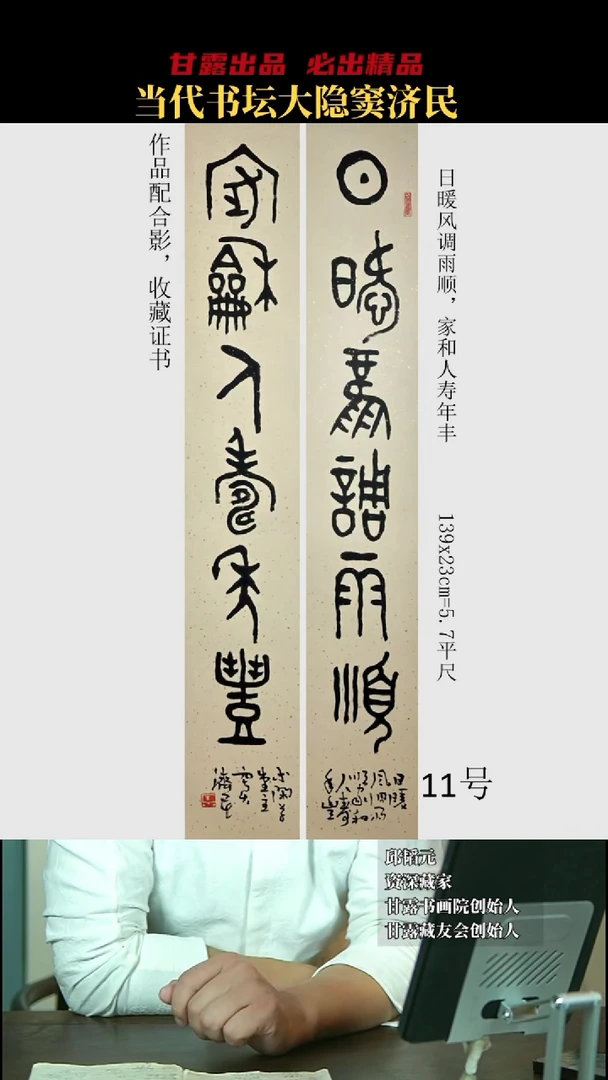 甘露出品 必出精品
当代书坛大隐窦济民
日暖风调雨顺，家和人寿年丰
139x23cm=5.7平尺
日暖风调雨顺
家龢人寿年豐
作品配合影，收藏证书
11号
邱韬元
资深藏家
甘露书画院创始人
甘露藏友会创始人